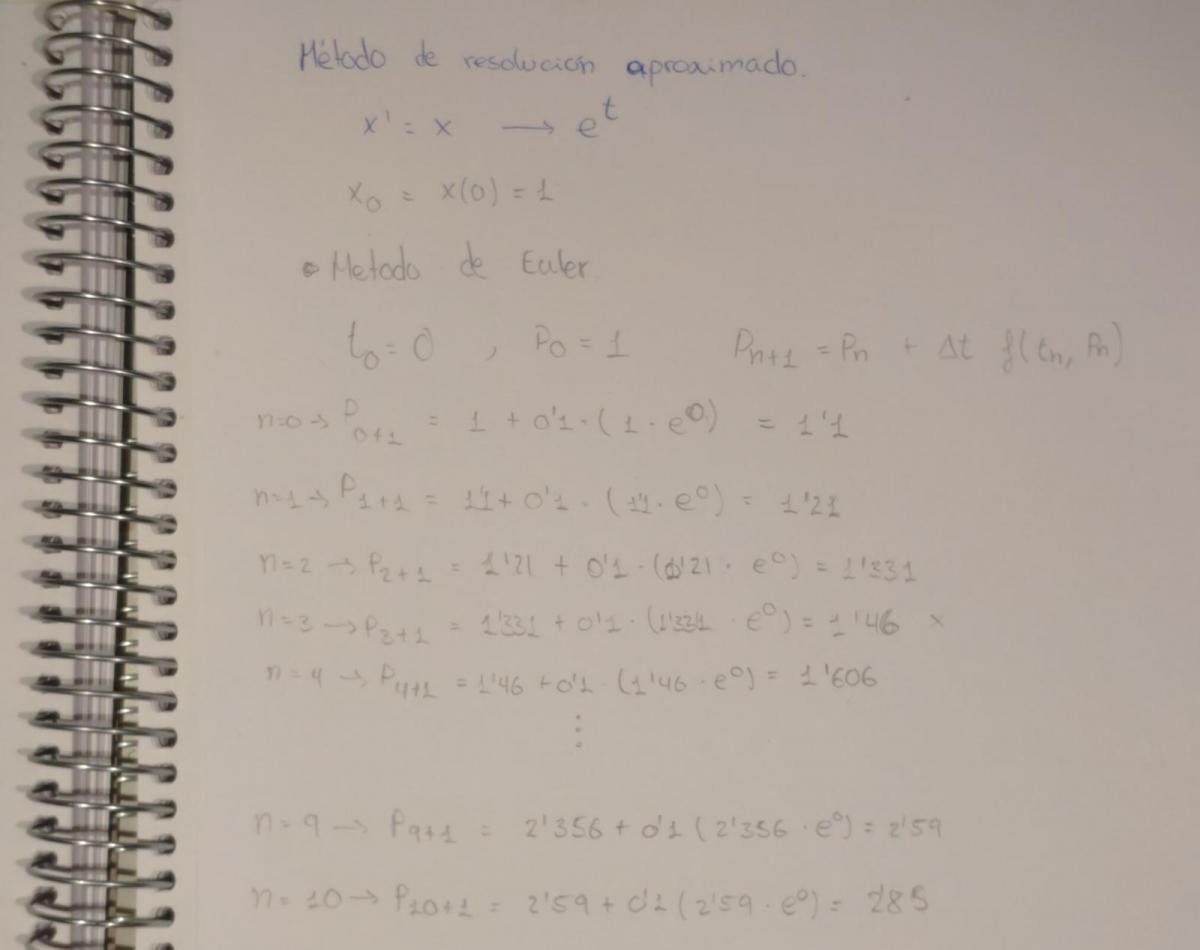 Método de resolución aproximado.
x' = x → e^t
x₀ = x(0) = 1
• Metodo de Euler
t₀ = 0 , P₀ = 1 Pₙ₊₁ = Pₙ + Δt f(tₙ, Pₙ)
n=0 → P₀₊₁ = 1 + 0'1 · (1 · e⁰) = 1'1
n=1 → P₁₊₁ = 1'1 + 0'1 · (1'1 · e⁰) = 1'21
n=2 → P₂₊₁ = 1'21 + 0'1 · (1'21 · e⁰) = 1'331
n=3 → P₃₊₁ = 1'331 + 0'1 · (1'331 · e⁰) = 1'46 x
n=4 → P₄₊₁ = 1'46 + 0'1 · (1'46 · e⁰) = 1'606
⋮
n=9 → P₉₊₁ = 2'356 + 0'1 (2'356 · e⁰) = 2'59
n=10 → P₁₀₊₁ = 2'59 + 0'1 (2'59 · e⁰) = 2'85